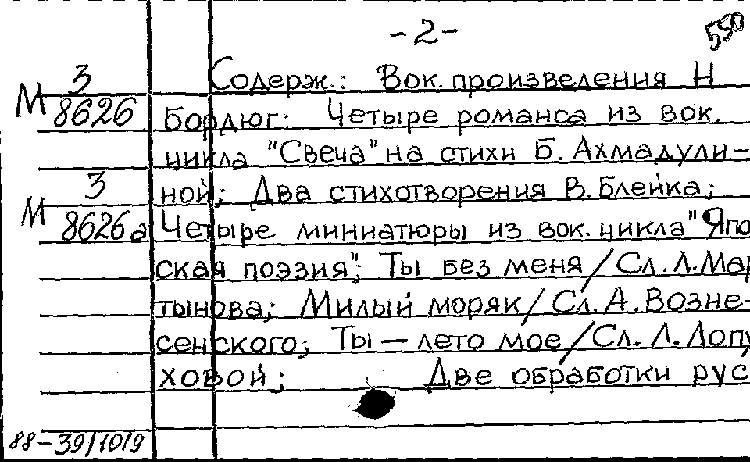 -2-
550
М 3 8626
М 3 8626а
Содерж.: Вок. произведения Н
Бордюг: Четыре романса из вок.
цикла "Свеча" на стихи Б. Ахмадули-
ной; Два стихотворения В. Блейка;
Четыре миниатюры из вок. цикла "Япо
ская поэзия"; Ты без меня/Сл. Л. Мар
тынова; Милый моряк/Сл. А. Возне-
сенского; Ты — лето мое/Сл. Л. Лопу
ховой; Две обработки рус
88-39/1019